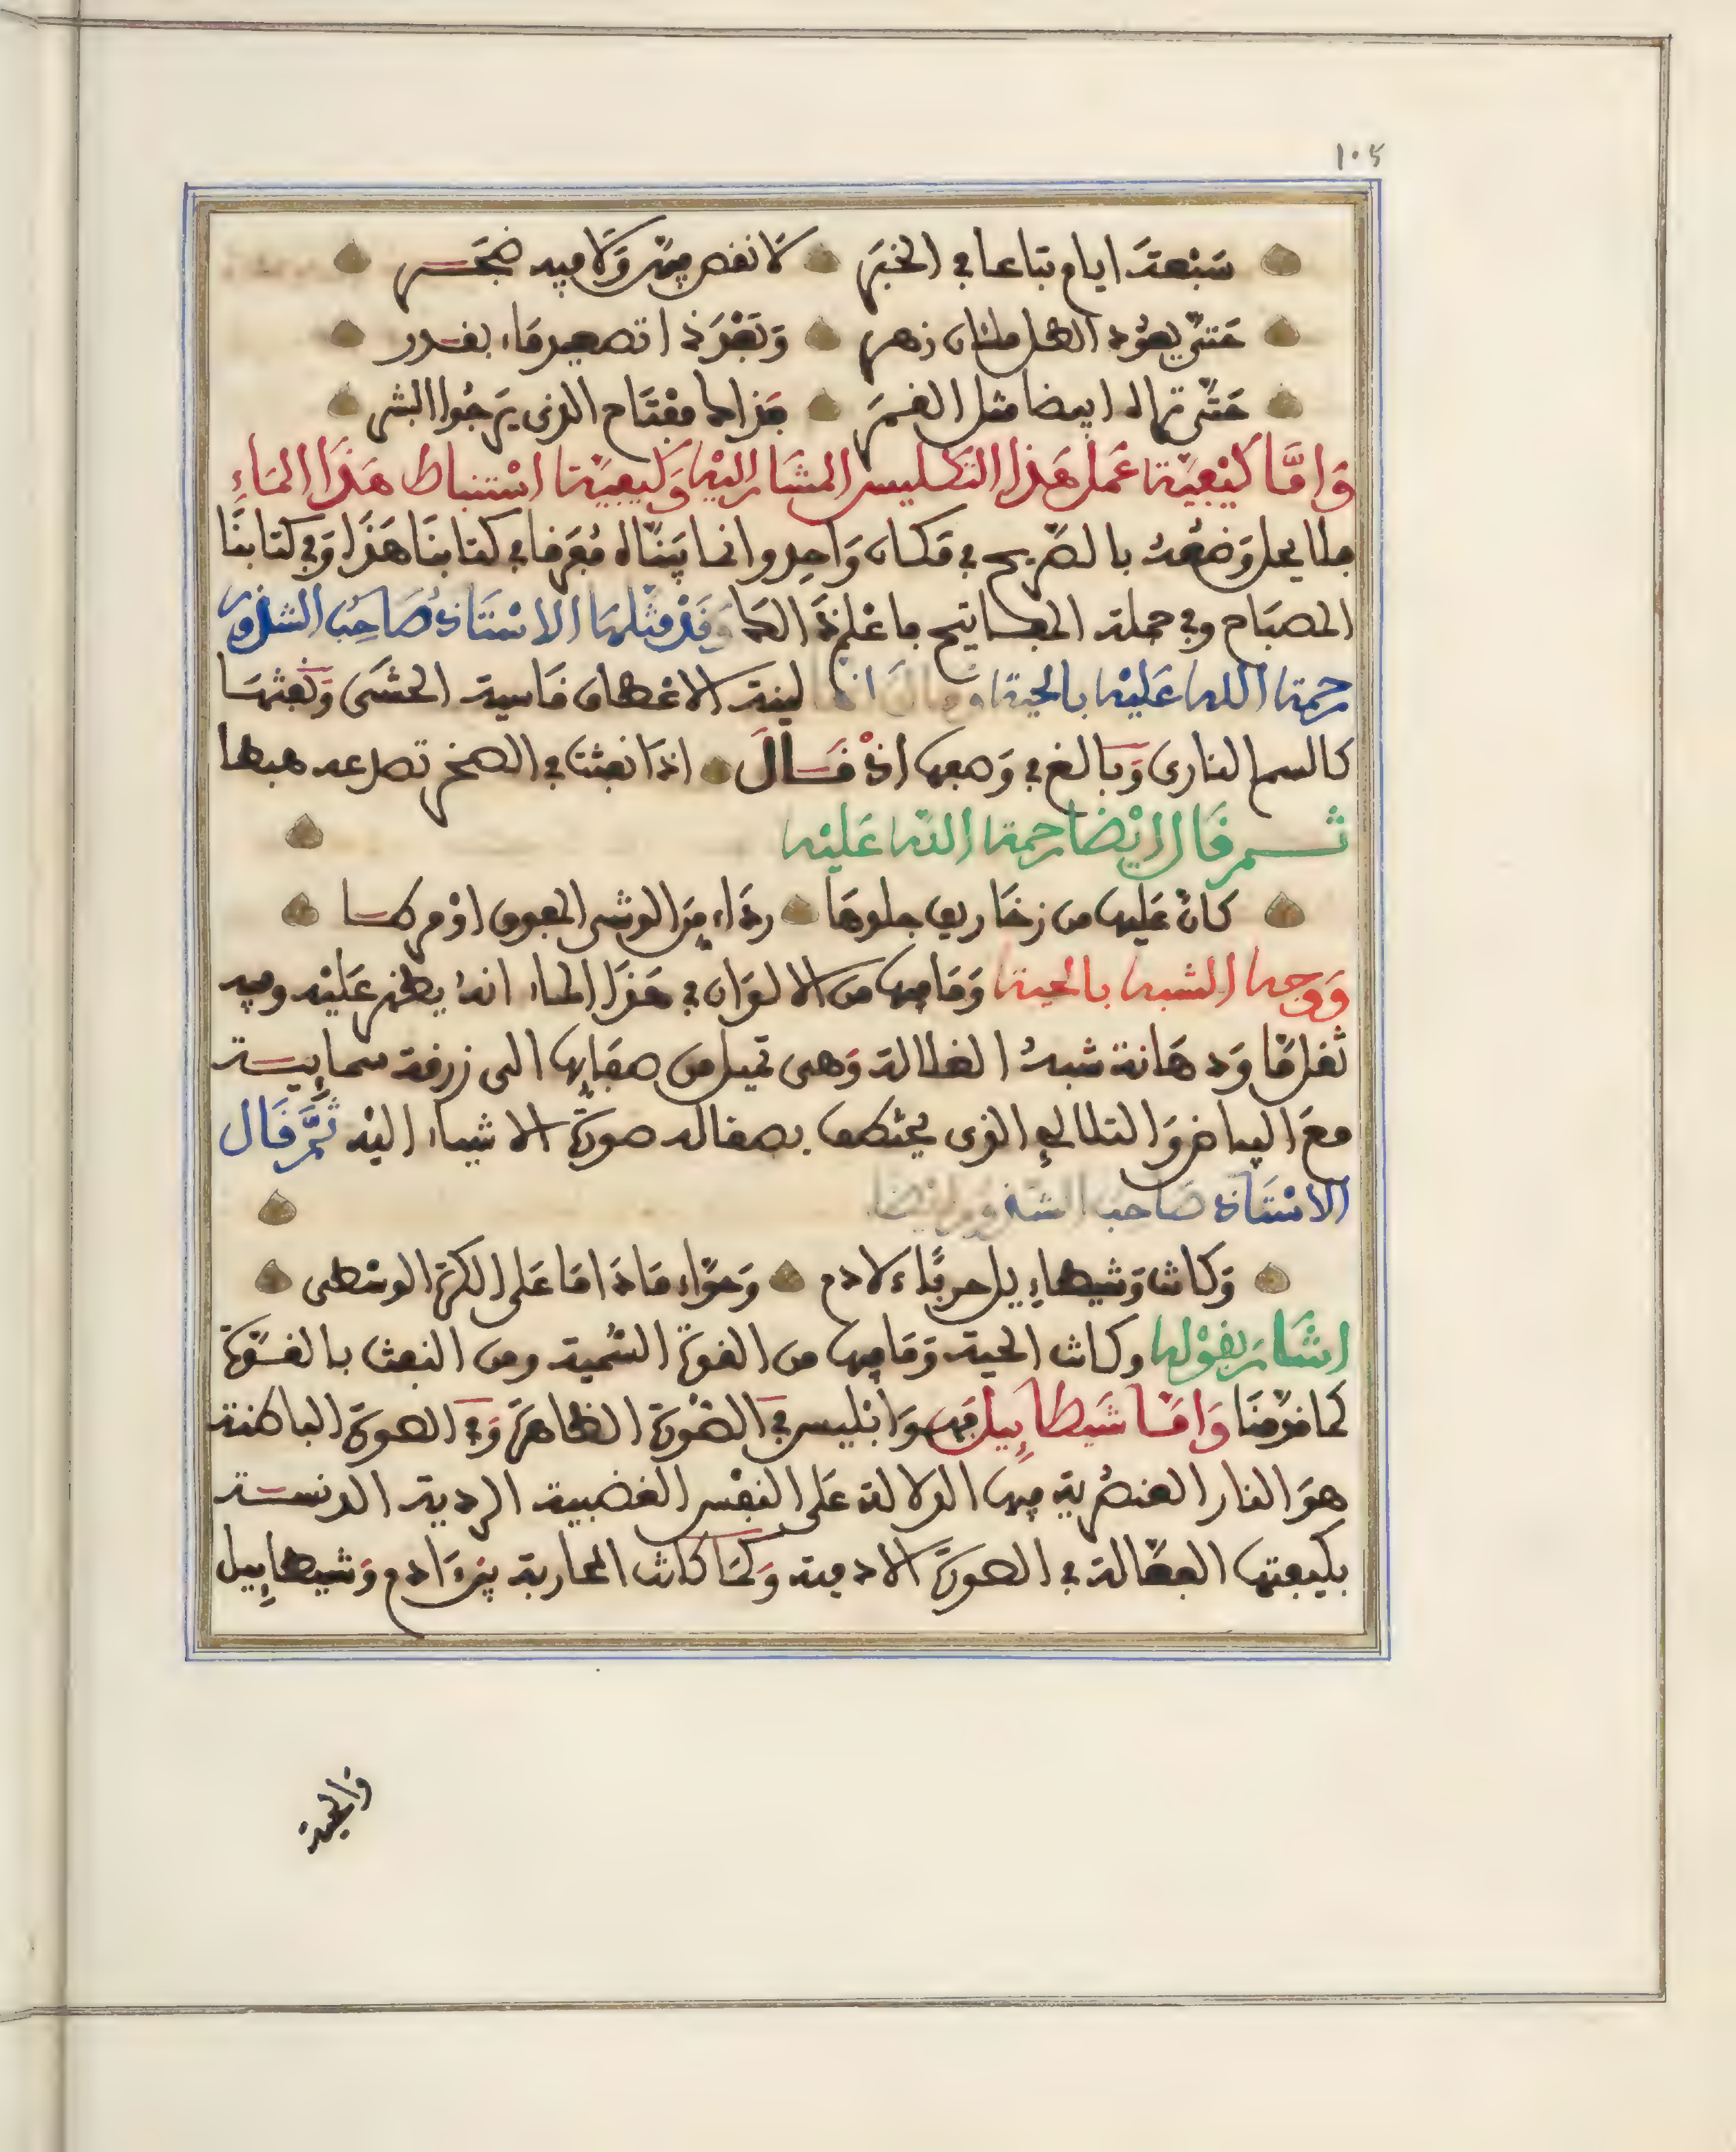 ١٠٥
سبعة ايام تباعا في الخبر لا نقص فيه ولا فيه ضجر
حتى يعود الكل ملئان زهر وبعد ذا تصعيد ماء بقدر
حتى تراه ابيضا مثل القمر فذاك مفتاح الذي يرجوا البشر
وَامَّا كَيْفيّة عَمل هَذا التكليس المشار اليْه وَكيفيّة استنباط هَذَا الماءِ
فلا يحل وَضعُه بالصّريح في مكان وَاحِد وانما بيّناه مُفرقا في كتابنَا هَذَا وَفي كتابنَا
المصبَاح وفي جملة المفاتيح فاعْلم ذَالك وَقدْ مثلهَا الاسْتَاذ صَاحِبُ الشذور
رحمة الله عَليْه بالحية وقالَ انها لينة الاعطاف قاسية الحشَى وَنفثهَا
كالسم النارى وَبالغ في وَصفها اذْ قَالَ اذا نفثت في الصخر تصدعه هبطا
ثم قال ايْضا رحمة الله عَليْه
كانْ عَليها من زخاريف جلدهَا رداء مِن الوشي المفوف اوْ مرطا
وَوجه الشبه بالحية وَمَا فيها من الالوَان في هَذَا الماء انهُ يظهر عَليْه وفيه
ثقل مّا وَدهَانة شبهُ الغلالة وَهي تميل من صفايها الى زرقة سماييـة
معَ البياض وَالتلالؤ الذي يحتطف بصقاله صورة الاشياء اليْه ثُمَّ قَال
الاسْتَاذ صَاحب الشذور ايْضا
وَكانت وَشيطاييل حربًا لادم وَحوّاء مَا دَامَا عَلى الكرة الوسْطى
اشَار بقوْله وكانت الحية وَمَا فيها من القوة السُمية ومن النفث بالقـوّة
كما قدّمنَا وَامّا شَيطاييل فهوَ ابْليس في الصّورة الظاهرة وَفي الصورة الباطنة
هوَ النار العنصُرية فيها الدلالة عَلى النفْس الغضبية الردية الدنسـة
بكيفيتها الفعّالة في الصورة الادمية وَكمَا كانت المحاربة بيْن ءَادم وَشيطاييل
والحية